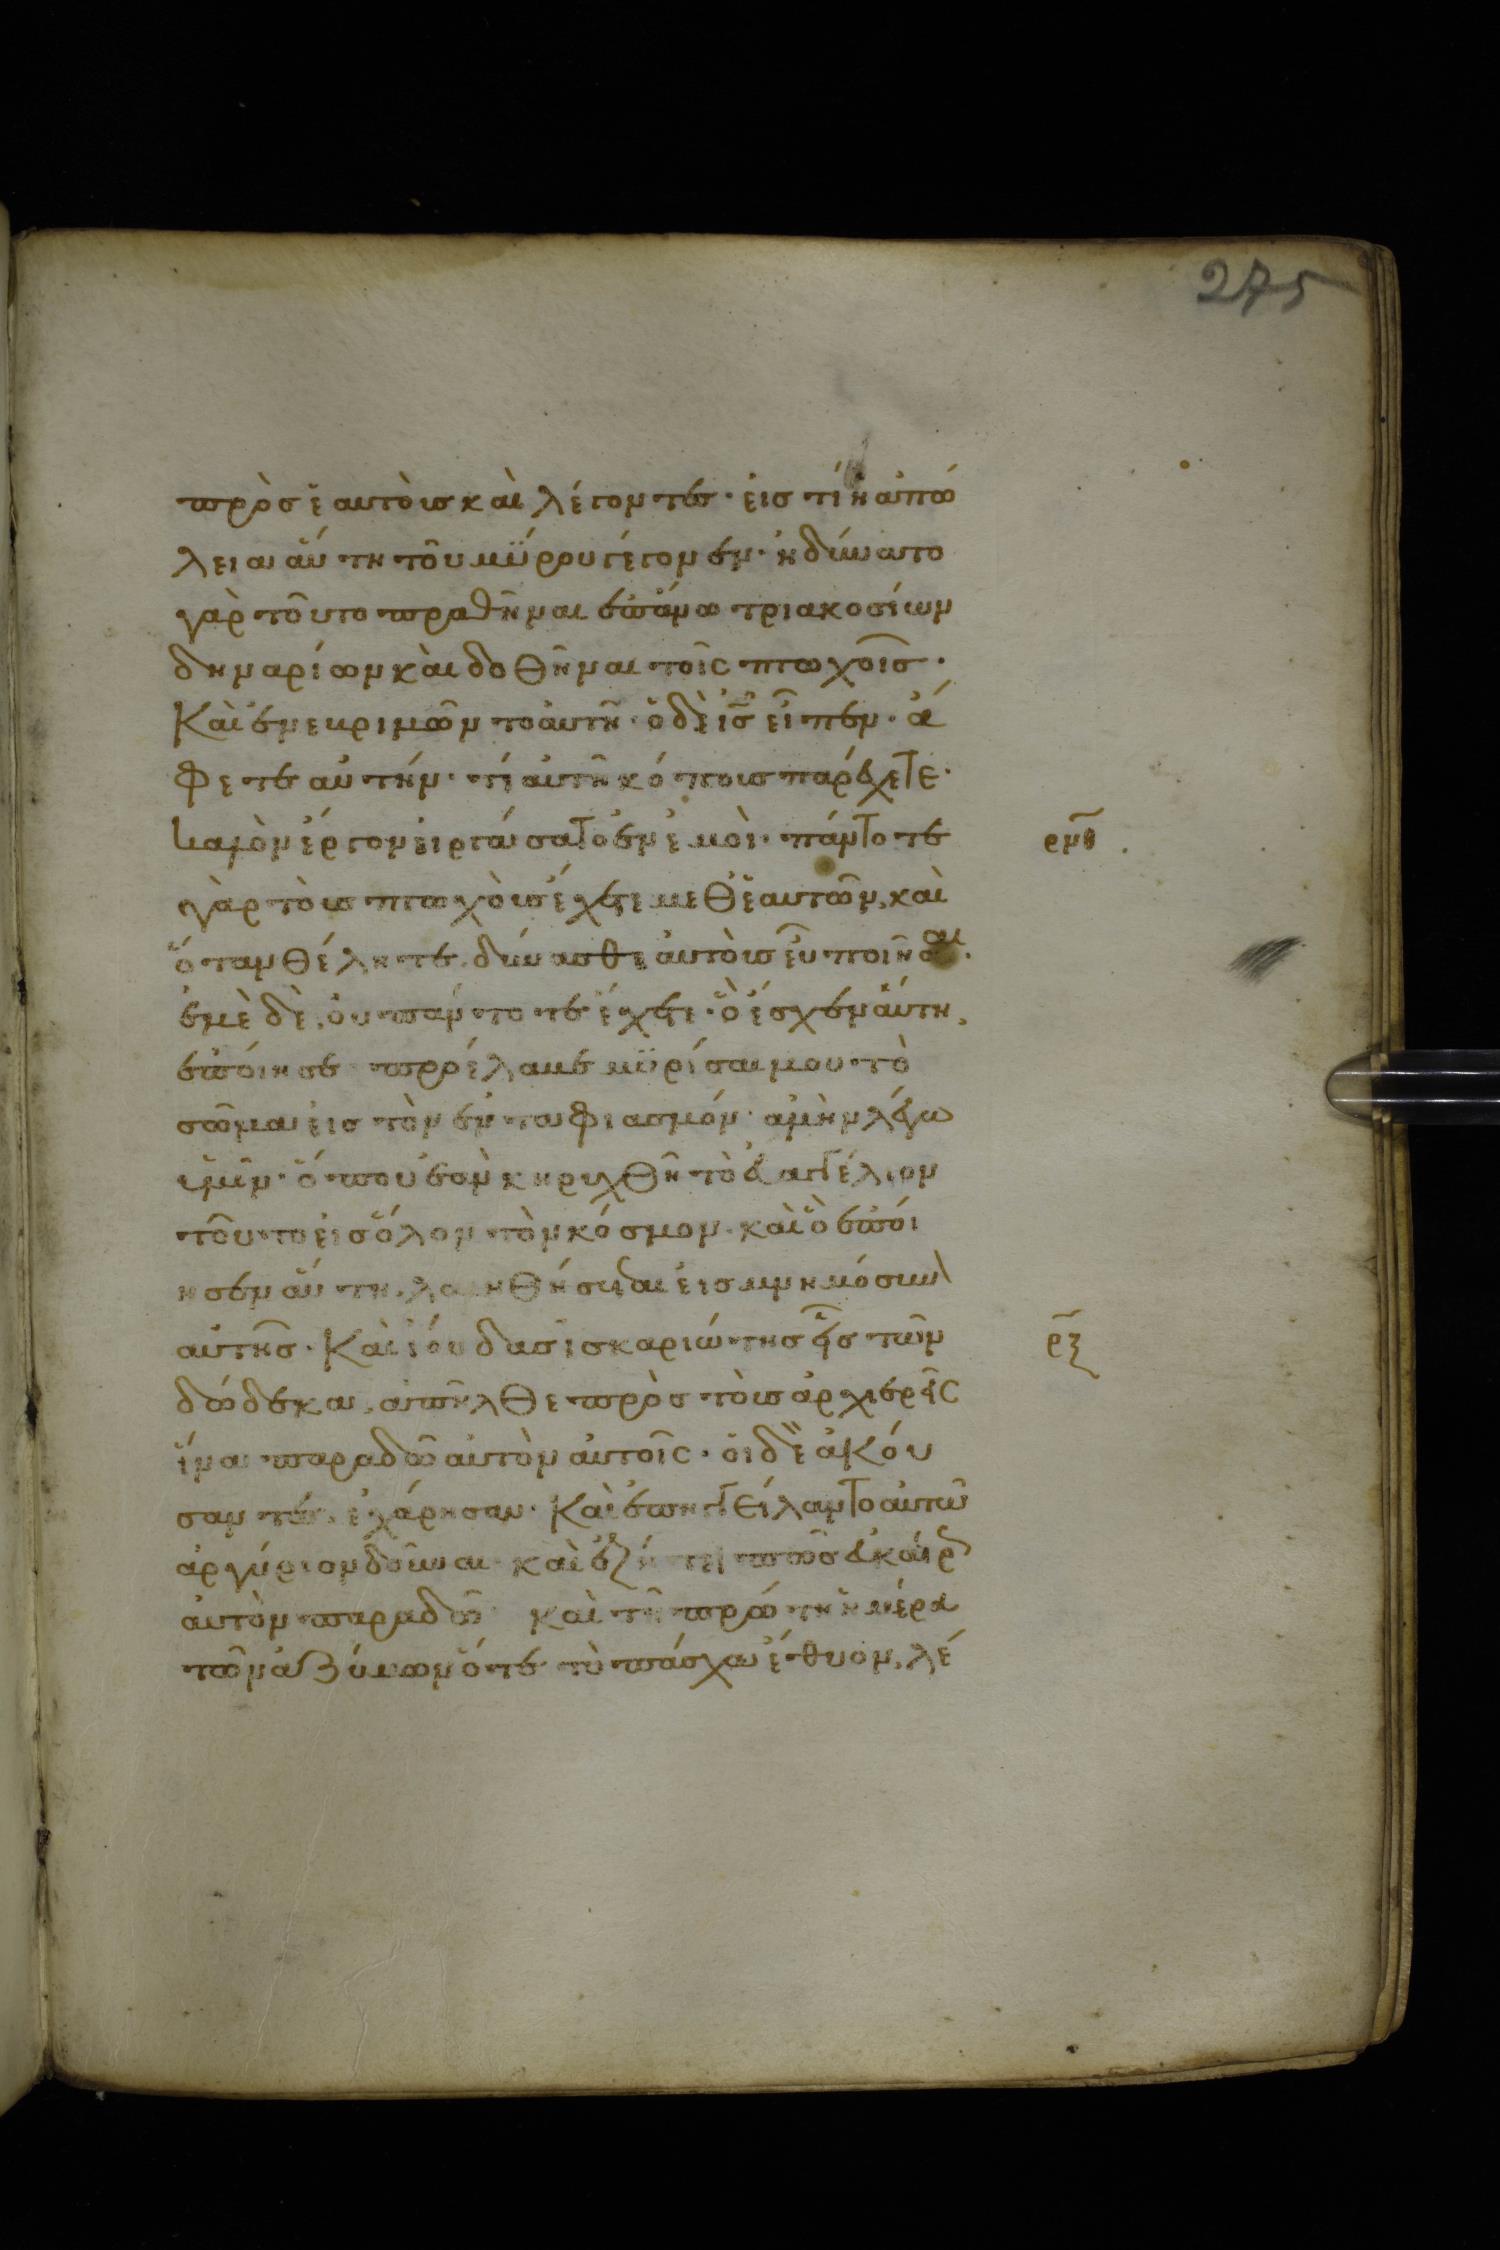 275
πρὸς ἑαυτοὺς καὶ λέγοντες· εἰς τί ἡ ἀπώ
λεια αὕτη τοῦ μύρου γέγονεν· ἠδύνατο
γὰρ τοῦτο πραθῆναι ἐπάνω τριακοσίων
δηναρίων καὶ δοθῆναι τοῖς πτωχοῖς·
Καὶ ἐνεβριμῶντο αὐτῆ· ὁ δὲ ις εἶπεν· ἄ
φετε αὐτήν· τί αὐτῆ κόπους παρέχετε·
καλὸν ἔργον εἰργάσατο ἐν ἐμοὶ· πάντοτε
ρνθ
γὰρ τοὺς πτωχοὺς ἔχετε μεθ ἑαυτῶν, καὶ
ὅταν θέλητε, δύνασθε αὐτοὺς εὖ ποιῆσαι·
ἐμὲ δὲ, οὐ πάντοτε ἔχετε· ὃ ἔσχεν αὕτη,
ἐποίησε προέλαβε μυρίσαι μου τὸ
σῶμα εἰς τὸν ἐνταφιασμόν· ἀμὴν λέγω
ὑμῖν· ὅπου ἐὰν κηρυχθῆ τὸ εὐαγγέλιον
τοῦτο εἰς ὅλον τὸν κόσμον· καὶ ὃ ἐποί
ησεν αὕτη, λαληθήσεται εἰς μνημόσυν
αὐτῆς· Καὶ ἰούδας ἰσκαριώτης εἷς τῶν
ρξ
δώδεκα, ἀπῆλθε πρὸς τοὺς ἀρχιερεῖς
ἵνα παραδῶ αὐτὸν αὐτοῖς· οἱ δὲ ἀκού
σαντες, ἐχάρησαν· Καὶ ἐπηγγείλαντο αὐτῶ
ἀργύριον δοῦναι· καὶ ἐζήτει πῶς εὐκαίρ
αὐτὸν παραδῶ· καὶ τῆ πρώτη ἡμέρα
τῶν ἀζύμων ὅτε τὸ πάσχα ἔθυον, λέ